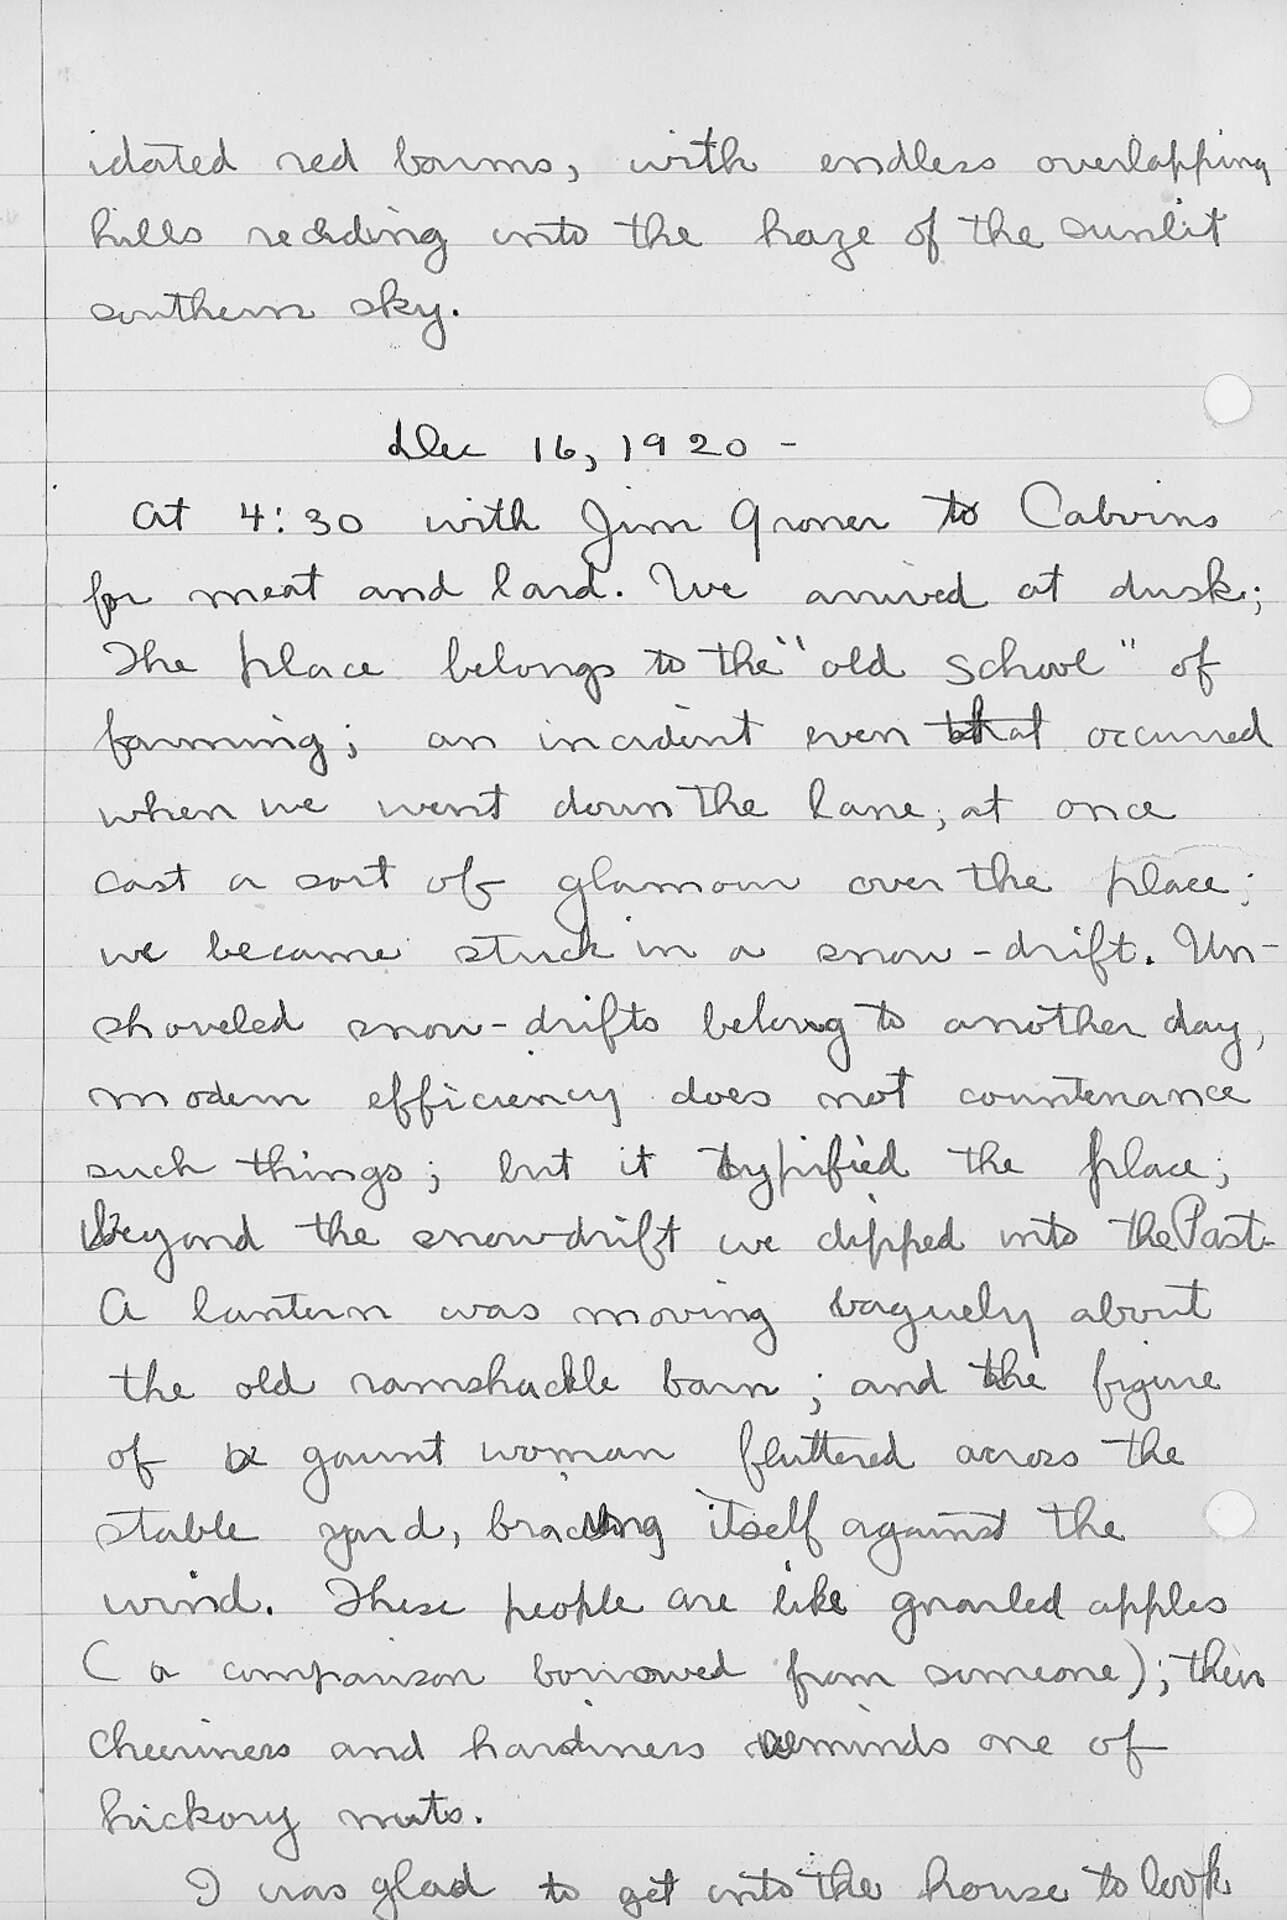 idated red barns, with endless overlapping
hills receding into the haze of the sunlit
southern sky.
Dec 16, 1920 -
At 4:30 with Jim Groner to Calvins
for meat and lard. We arrived at dusk;
The place belongs to the "old school" of
farming; an incident even that occurred
when we went down the lane, at once
cast a sort of glamour over the place;
we became stuck in a snow-drift. Un-
shoveled snow-drifts belong to another day,
modern efficiency does not countenance
such things; but it typified the place;
Beyond the snowdrift we dipped into the Past.
A lantern was moving vaguely about
the old ramshackle barn; and the figure
of a gaunt woman fluttered across the
stable yard, bracing itself against the
wind. These people are like gnarled apples
(a comparison borrowed from someone); their
cheeriness and hardiness reminds one of
hickory nuts.
I was glad to get into the house to look